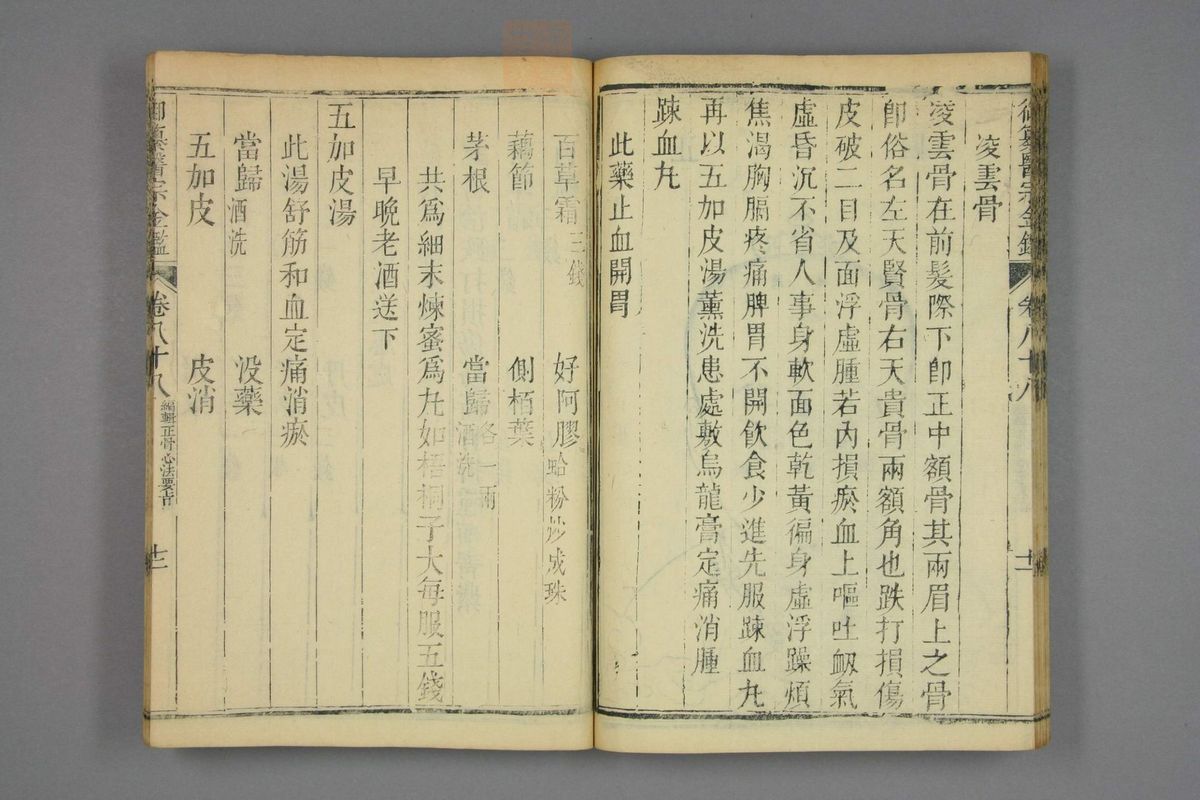 御纂醫宗金鑑 卷八十八 十一
凌雲骨
凌雲骨在前髮際下卽正中額骨其兩眉上之骨
卽俗名左天賢骨右天貴骨兩額角也跌打損傷
皮破二目及面浮虛腫若內損瘀血上嘔吐衂氣
虛昏沉不省人事身軟面色乾黃徧身虛浮躁煩
焦渴胸膈疼痛脾胃不開飲食少進先服踈血九
再以五加皮湯薰洗患處敷烏龍膏定痛消腫
踈血九
此藥止血開胃
百草霜三錢 好阿膠蛤粉炒成珠
藕節 側栢葉
茅根 當歸各一兩酒洗
共爲細末煉蜜爲九如梧桐子大每服五錢
早晚老酒送下
五加皮湯
此湯舒筋和血定痛消瘀
當歸酒洗 沒藥
五加皮 皮消
御纂醫宗金鑑 卷八十八 編輯正骨心法要旨